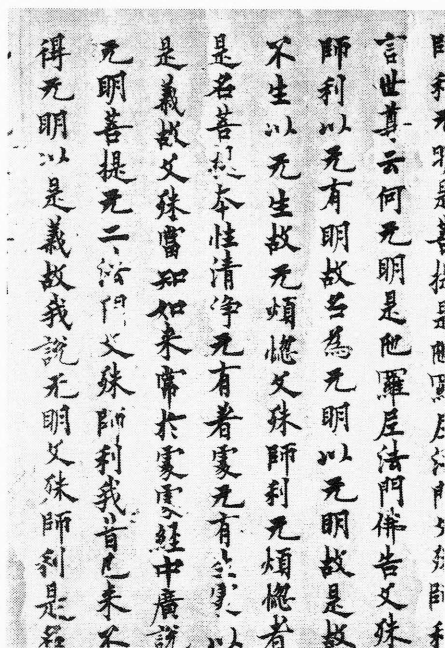 師利无明是菩提是陁羅尼法門文殊師利
言世尊云何无明是陁羅尼法門佛告文殊
師利以无有明故名為无明以无明故是故
不生以无生故无煩惚文殊師利无煩惚者
是名菩提本性清淨无有著處无有生處以
是義故文殊當知如来常於處處経中廣說
无明菩提无二法門文殊師利我昔已来不
得无明以是義故我說无明文殊師利是名